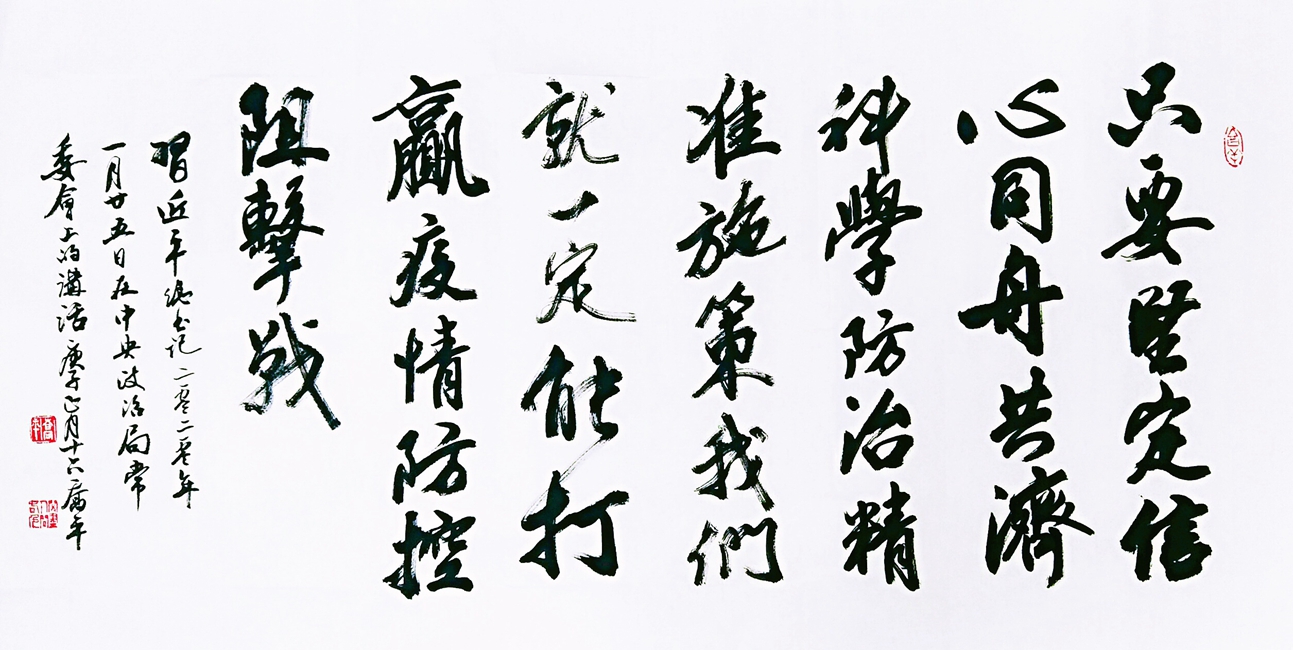 只要堅定信
心同舟共濟
科學防治精
准施策我們
就一定能打
贏疫情防控
阻擊戰
習近平總书记二零二零年
一月廿五日在中央政治局常
委會上的講話庚子正月十六